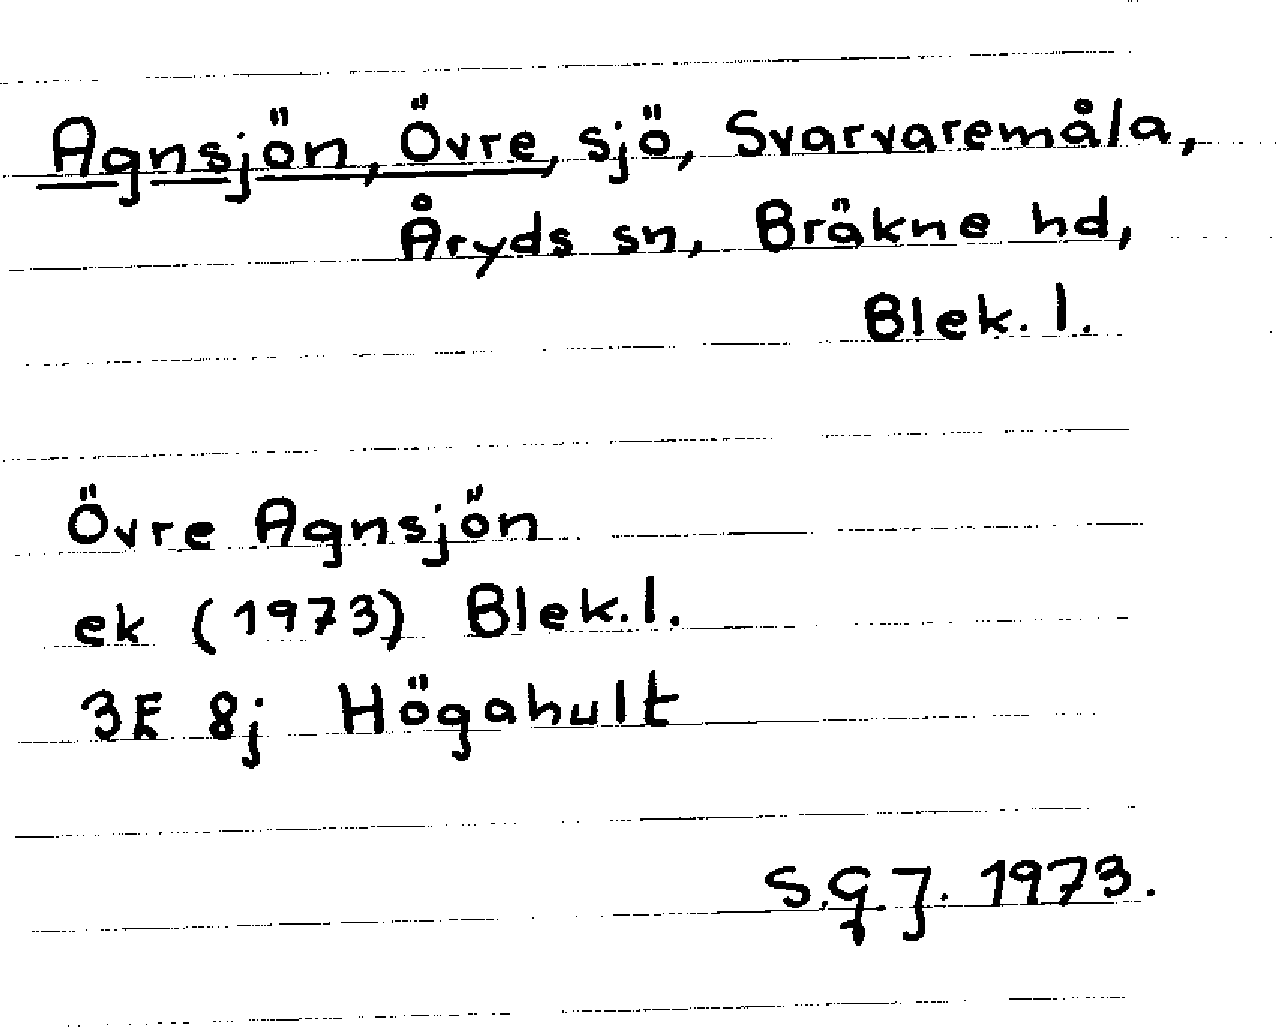 Agnsjön, Övre, sjö, Svarvaremåla,
Åryds sn, Bräkne hd,
Blek. l.
Övre Agnsjön
ek (1973) Blek. l.
3E 8j Högahult
S.G.J. 1973.